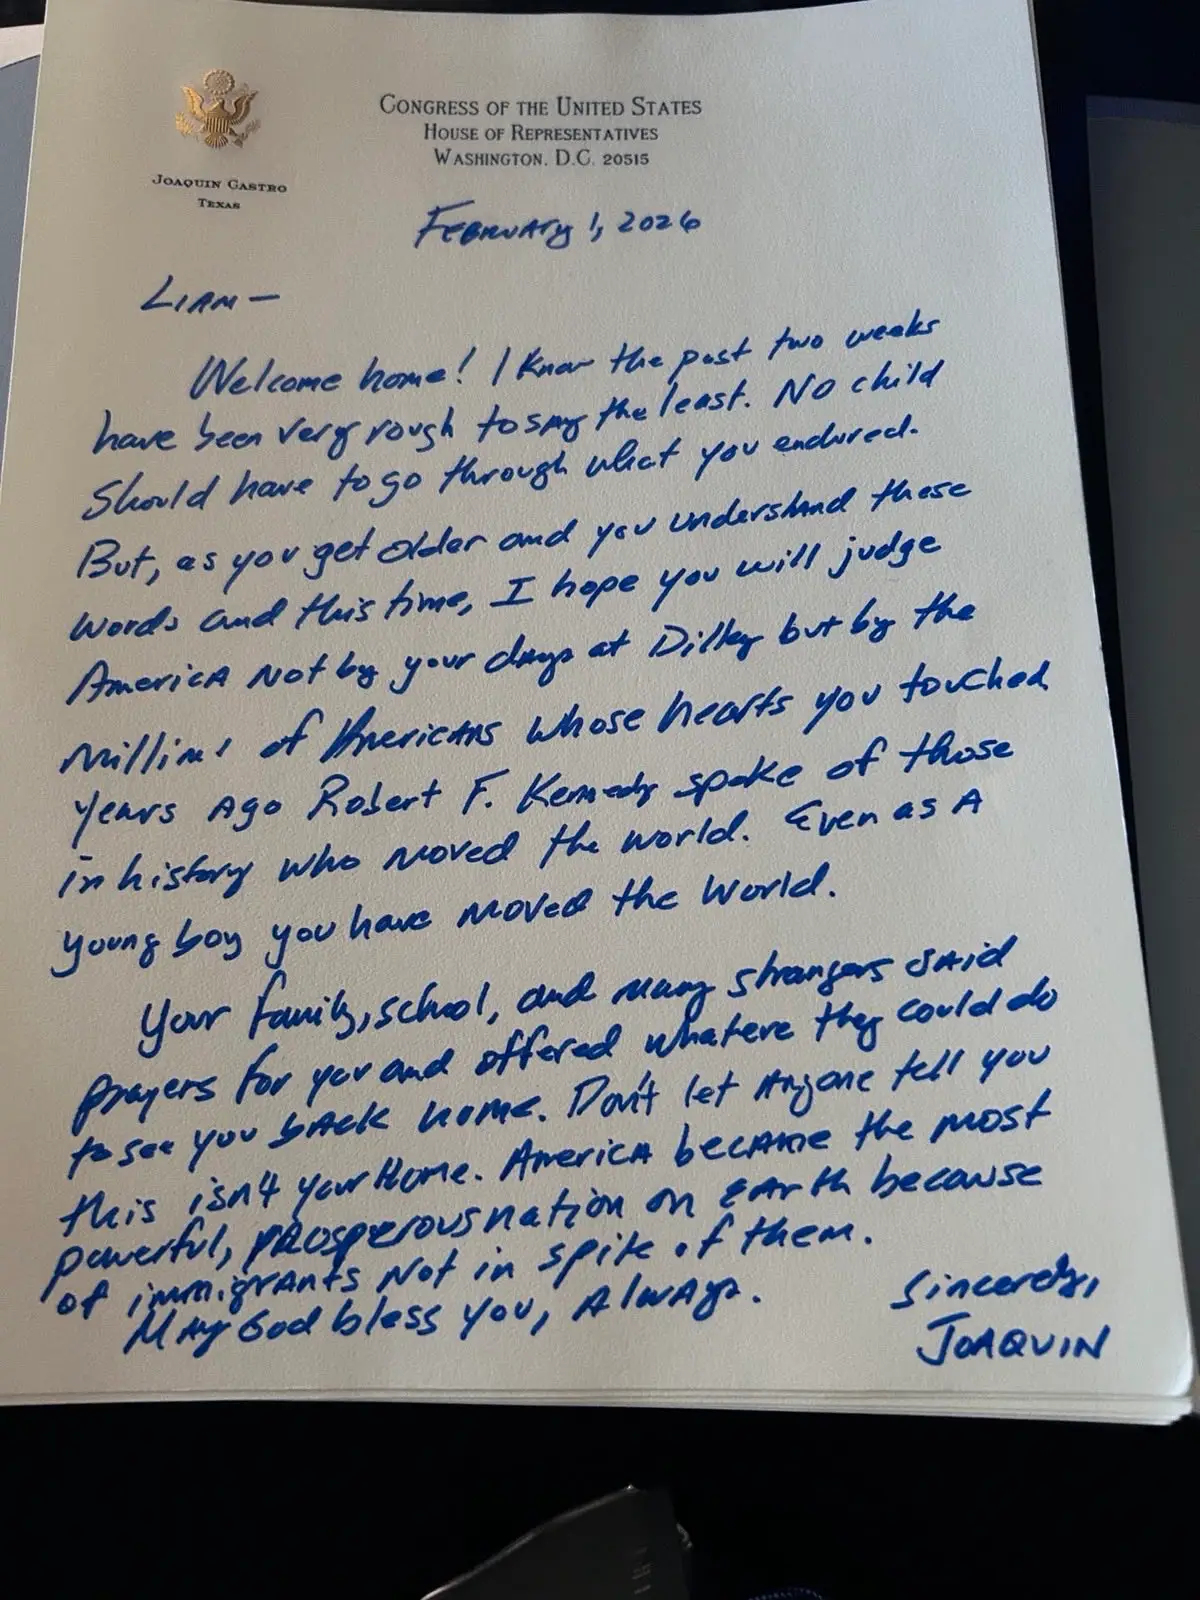 CONGRESS OF THE UNITED STATES
HOUSE OF REPRESENTATIVES
WASHINGTON, D.C. 20515
JOAQUIN CASTRO
TEXAS
FEBRUARY 1, 2026
LIAM –
Welcome home! I know the past two weeks
have been very rough to say the least. No child
should have to go through what you endured.
But, as you get older and you understand these
words and this time, I hope you will judge
America not by your days at Dilley but by the
millions of Americans whose hearts you touched.
Years ago Robert F. Kennedy spoke of those
in history who moved the world. Even as a
young boy you have moved the world.
Your family, school, and many strangers said
prayers for you and offered whatere they could do
to see you back home. Don't let anyone tell you
this isn't your home. America became the most
powerful, prosperous nation on earth because
of immigrants not in spite of them.
May God bless you, always.
Sincerely,
JOAQUIN